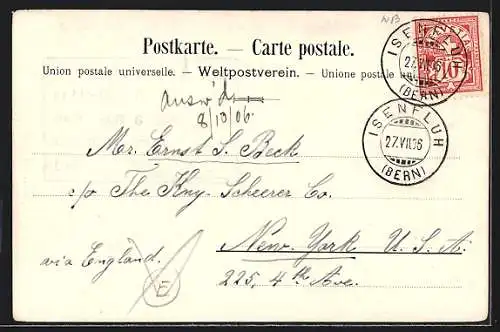 NB
Postkarte. — Carte postale.
Union postale universelle. – Weltpostverein. – Unione postale
ISENFLUH
27.VII.06
(BERN)
10
answ'd
8/10/06.
ISENFLUH
27.VII.06
(BERN)
Mr. Ernst S. Beck
c/o The Kny-Scheerer Co.
New-York U. S. A.
via England.
225, 4th Ave.
E